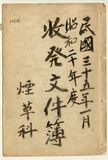 民國三十五年一月
昭和二十年度
收發文件簿
煙草科